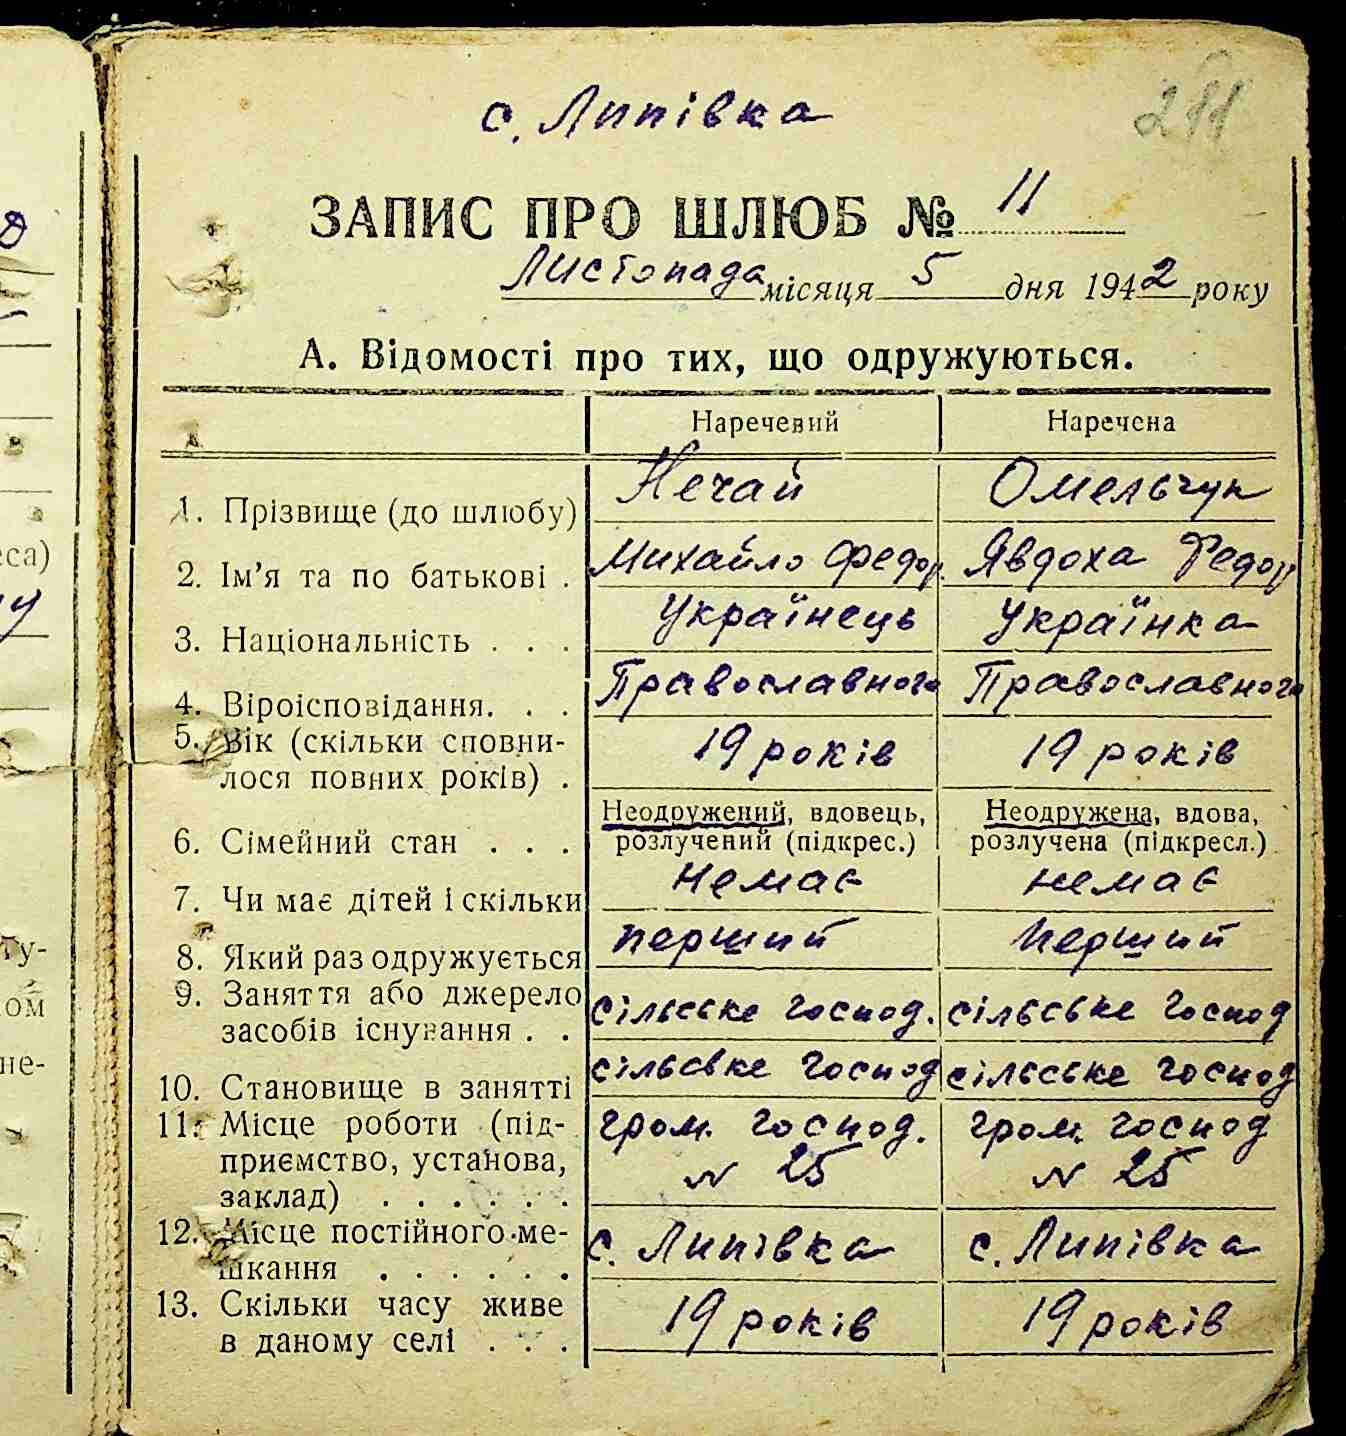 с. Липівка
ЗАПИС ПРО ШЛЮБ № 11
Листопада місяця 5 дня 1942 року
А. Відомості про тих, що одружуються.
Наречений Наречена
1. Прізвище (до шлюбу) Нечай Омельчук
2. Ім’я та по батькові . Михайло Федор. Явдоха Федор
3. Національність . . . Українець Українка
4. Віроісповідання. . . Православного Православного
5. Вік (скільки сповни-
лося повних років) . 19 років 19 років
6. Сімейний стан . . . Неодружений, вдовець, Неодружена, вдова,
розлучений (підкрес.) розлучена (підкресл.)
7. Чи має дітей і скільки Немає немає
8. Який раз одружується перший перший
9. Заняття або джерело
засобів існування . . сільське господ. сільське господ
10. Становище в занятті сільське господ сільське господ
11. Місце роботи (під- гром. господ. гром. господ
приємство, установа, N 25 N 25
заклад) . . . . . .
12. Місце постійного ме-
шкання . . . . . . с. Липівка с. Липівка
13. Скільки часу живе
в даному селі . . . 19 років 19 років
еса)
ту-
ом
не-